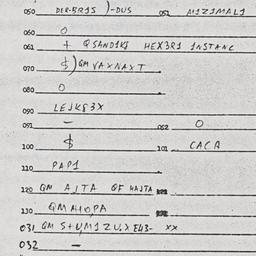 050 DER-BR1S )-DUS 051 M1Z1MAL1
060 O
061 + QSAND1K1 HEX3R1 1NSTANC
070 $) QM VAXNAXT
080 O
090 LEJK83X
091 - 092 O
100 $ 101 CACA
110 PAP1
120 QM AJTA QF HAJTA
130 QM
031 QM XX
032 -